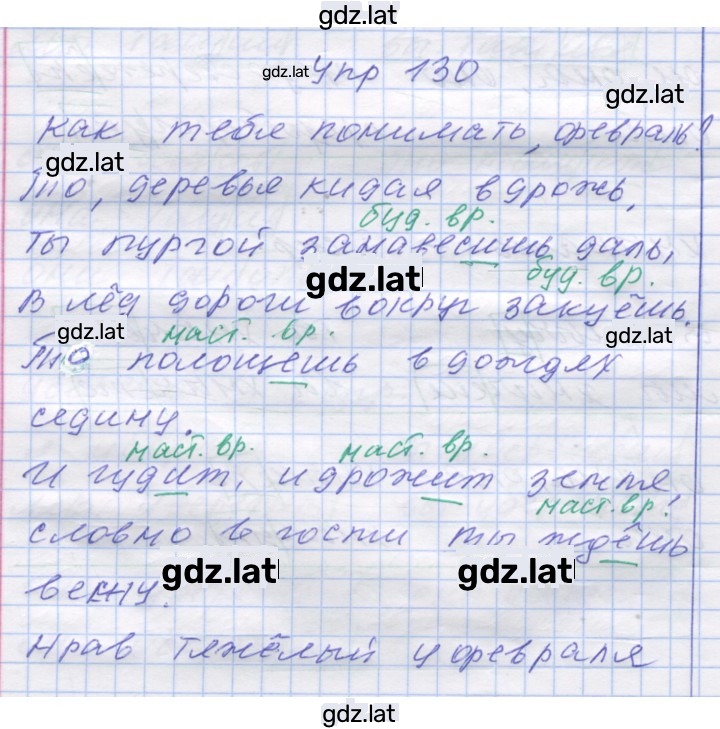 gdz.lat
gdz.lat Упр 130
gdz.lat
Как тебя понимать, февраль?
gdz.lat
То, деревья кидая в дрожь,
буд. вр.
ты пургой занавесишь даль,
gdz.lat буд. вр.
В лёд дороги вокруг закуёшь.
gdz.lat наст. вр. gdz.lat
То полощешь в дождях
седину.
наст. вр. наст. вр.
И гудит, и дрожит земля,
наст. вр.
словно в гости ты ждёшь
gdz.lat gdz.lat
весну.
Нрав тяжёлый у февраля
gdz.lat